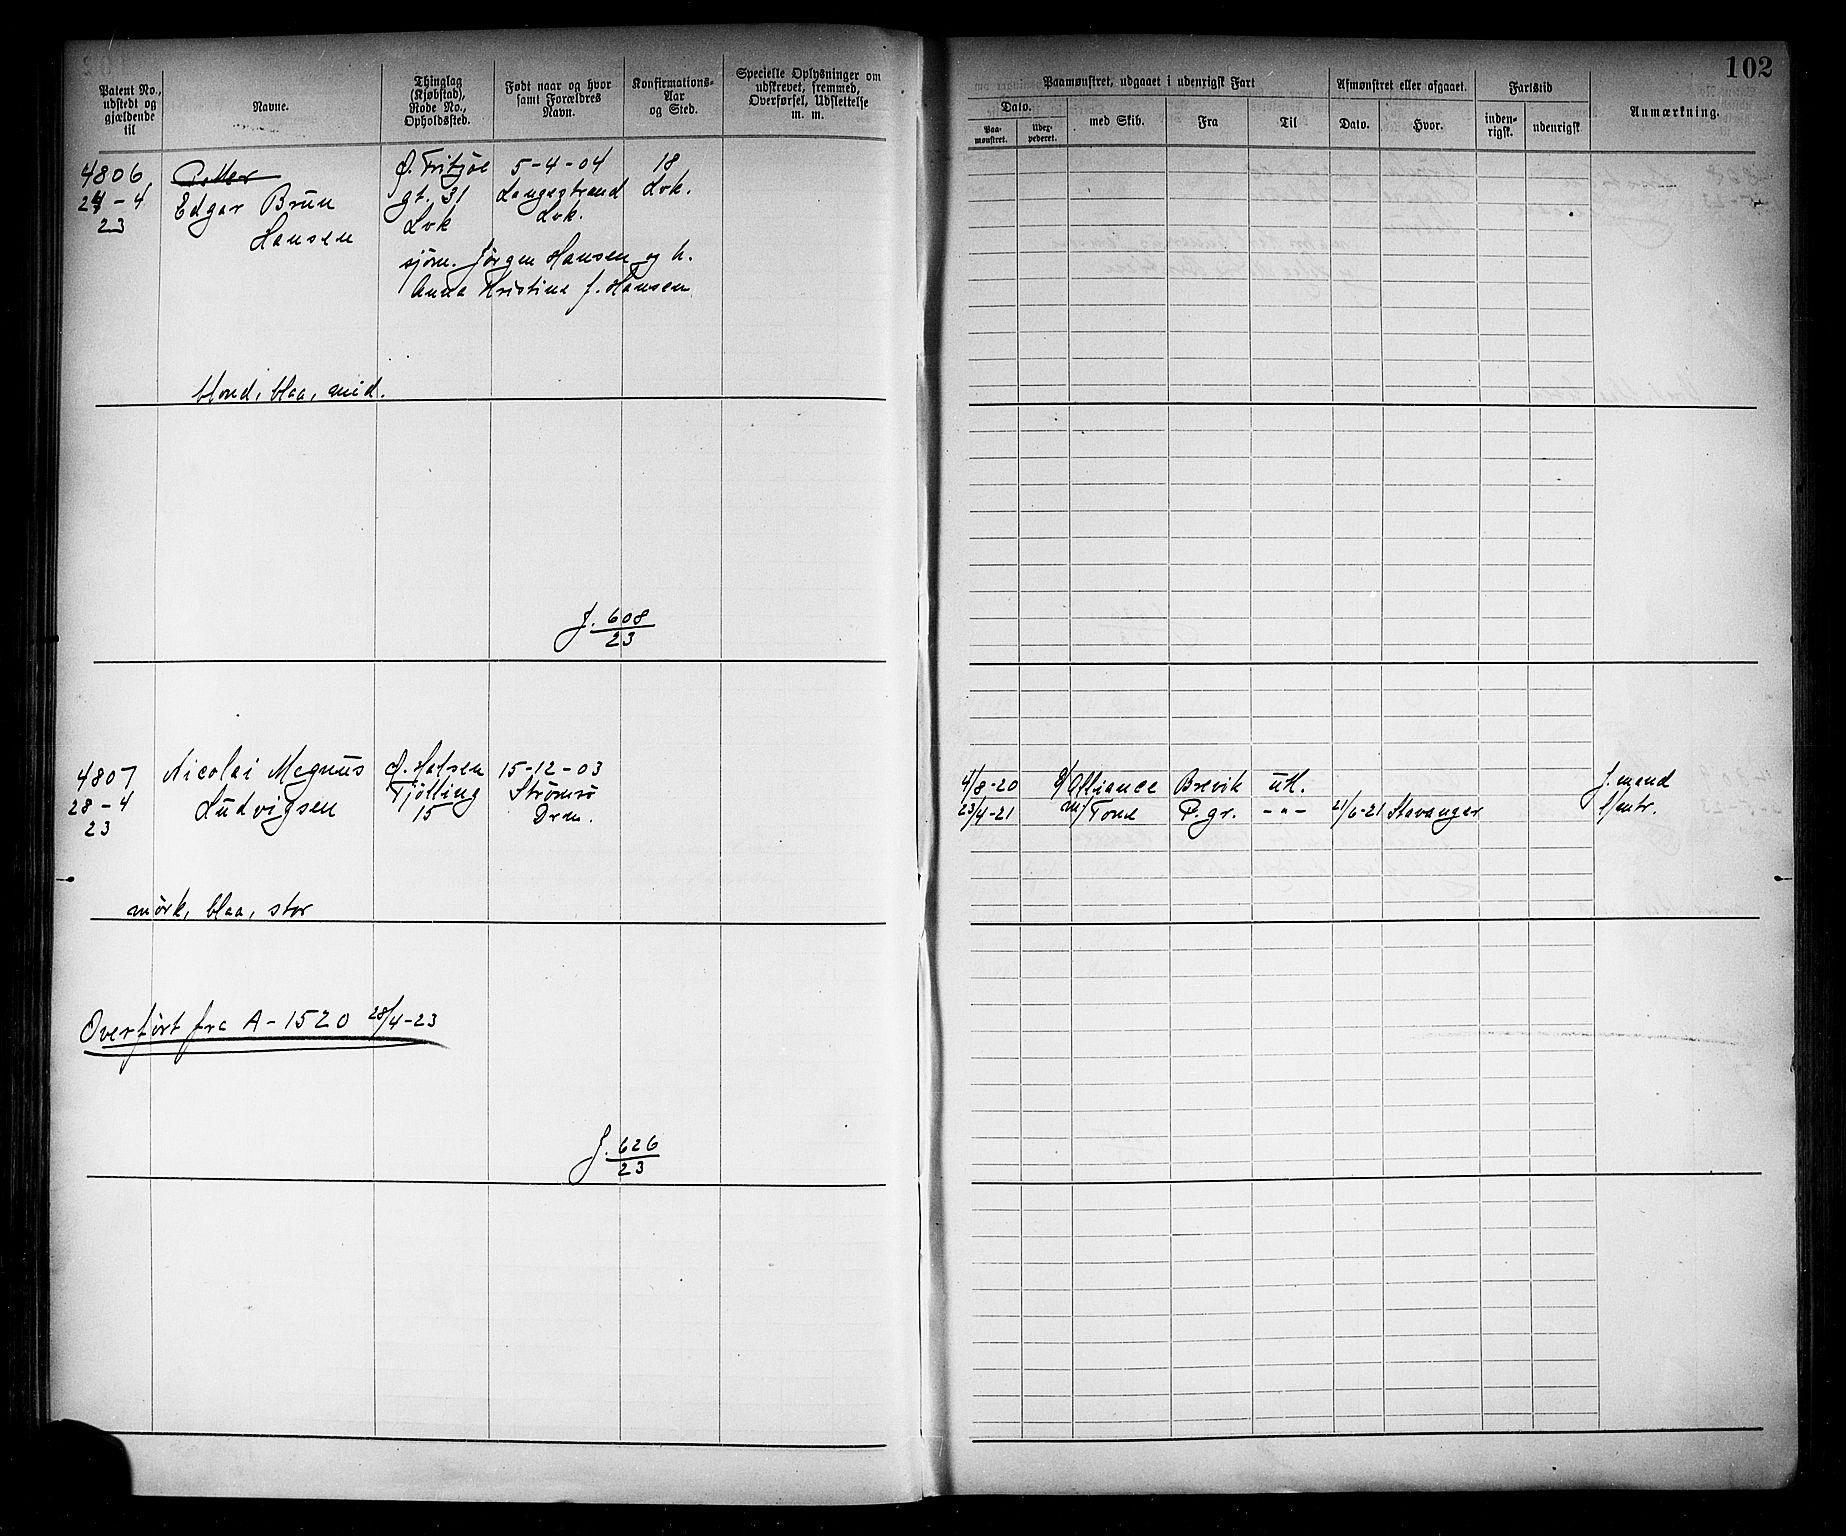 102
Patent No., udstedt og gjældende til
Navne.
Thinglag (Kjøbstad), Rode No., Opholdssted.
Født naar og hvor samt Forældres Navn.
Konfirmations-Aar og Sted.
Specielle Oplysninger om udskrevet, fremmed, Overførsel, Udslettelse m. m.
Paamønstret, udgaaet i udenrigsk Fart
Afmønstret eller afgaaet.
Fartstid
Anmærkning.
Dato.
med Skib.
Fra
Til
Dato.
Hvor.
inden-rigsk.
udenrigsk
Paa-mønstret.
Udex-pederet.
4806
24-4
23
Edgar Brun
Hansen
Ø. Fritzøe
gt. 31
Lvk
5-4-04
Langestrand
Lvk.
18
Lvk.
sjøm. Jørgen Hansen og h.
Anna Kristine f. Hansen
blond, blaa, mid.
J. 608
23
4807
28-4
23
Nicolai Magnus
Ludvigsen
Ø. Halsen
Tjølling
15
15-12-03
Strømsø
Drm.
4/8-20 S/Alliance Brevik utl. j.mand
23/4-21 m/Tone P.gr. -"- 21/6-21 Stavanger l/mtr.
mørk, blaa, stor
Overført fra A-1520 28/4-23
J. 626
23